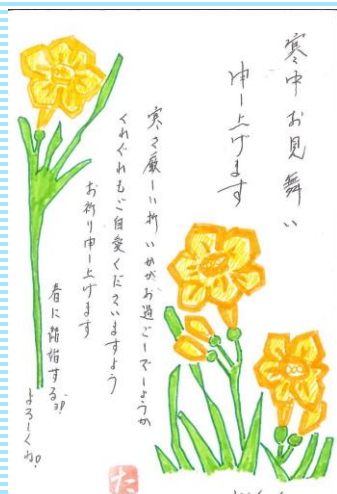 寒中お見舞い
申し上げます
寒さ厳しい折 いかがお過ごしでしょうか
くれぐれもご自愛くださいますよう
お祈り申し上げます
春に電話するね!
よろしくね!
た